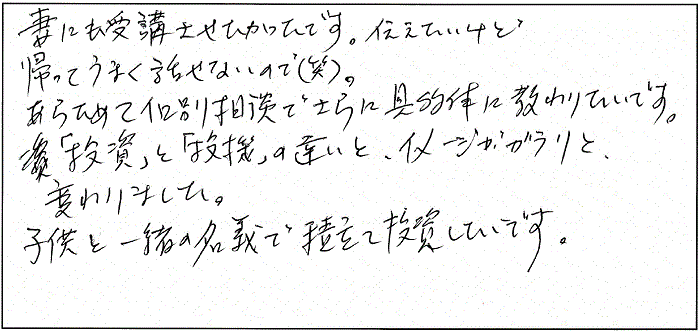 妻にも受講させたかったです。伝えたいけど
帰ってうまく話せないので(笑)。
あらためて個別相談でさらに具体的に教わりたいです。
「投資」と「投機」の違いと、イメージがガラリと、
変わりました。
子供と一緒の名義で積立て投資したいです。